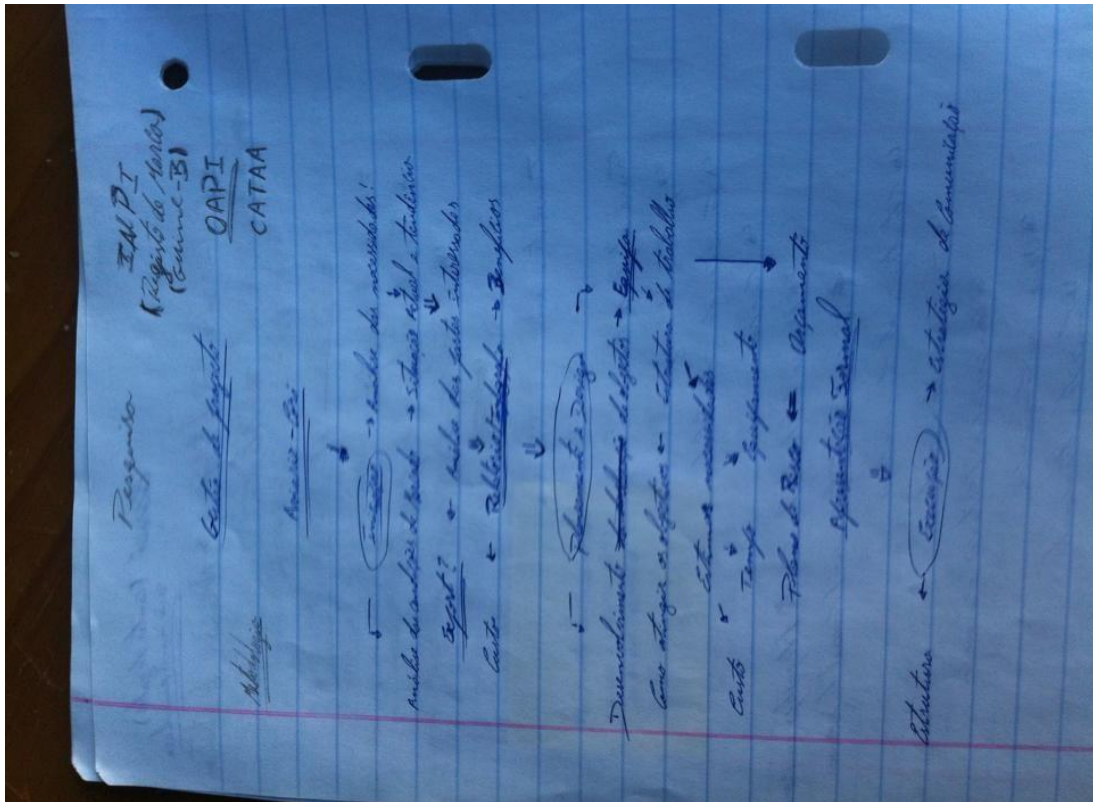 Pesquisa
INPI
(Registo de Marcas)
(Guiné-B)
OAPI
CATAA
Gestão de projeto
Metodologia
iniciação → Análise das necessidades!
Análise das análises de → situação actual e tendências
Export? análise das partes interessadas
Custos ← → Benefícios
Planeamento e Design
Desenvolvimento de objetivos → Equipa
Como atingir os objetivos ← estrutura de trabalho
Custo Tempo Equipamento
Plano de Risco ← Orçamento
Apresentação Formal
Estrutura ← Execução → estratégia de Comunicação